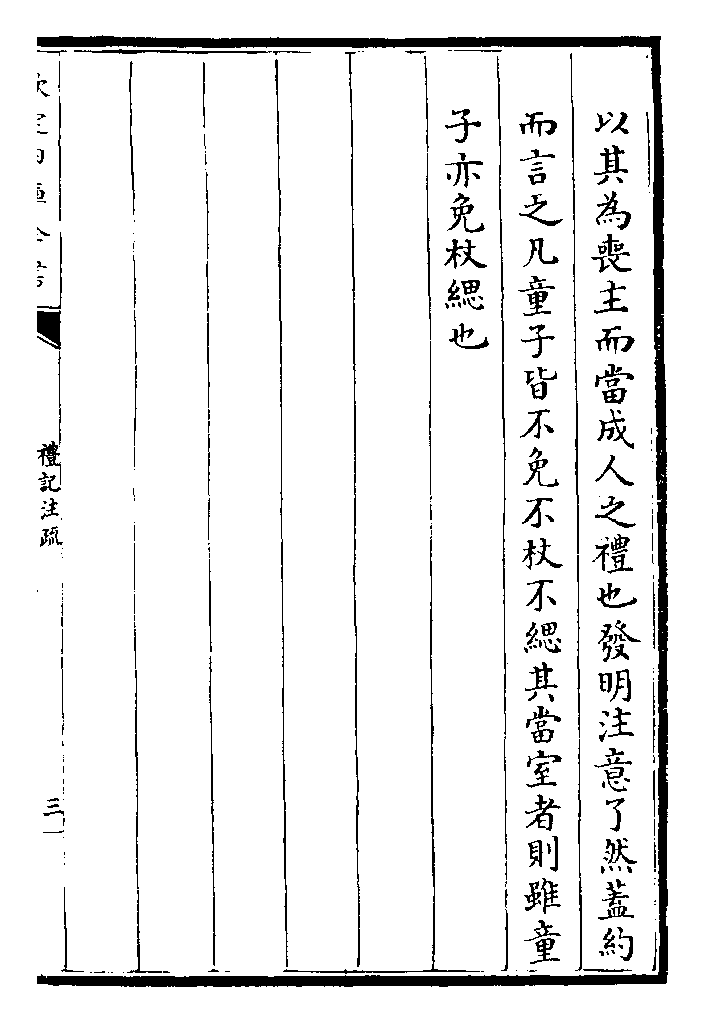 以其為喪主而當成人之禮也發明注意了然蓋約
而言之凡童子皆不免不杖不緦其當室者則雖童
子亦免杖緦也
禮記注疏